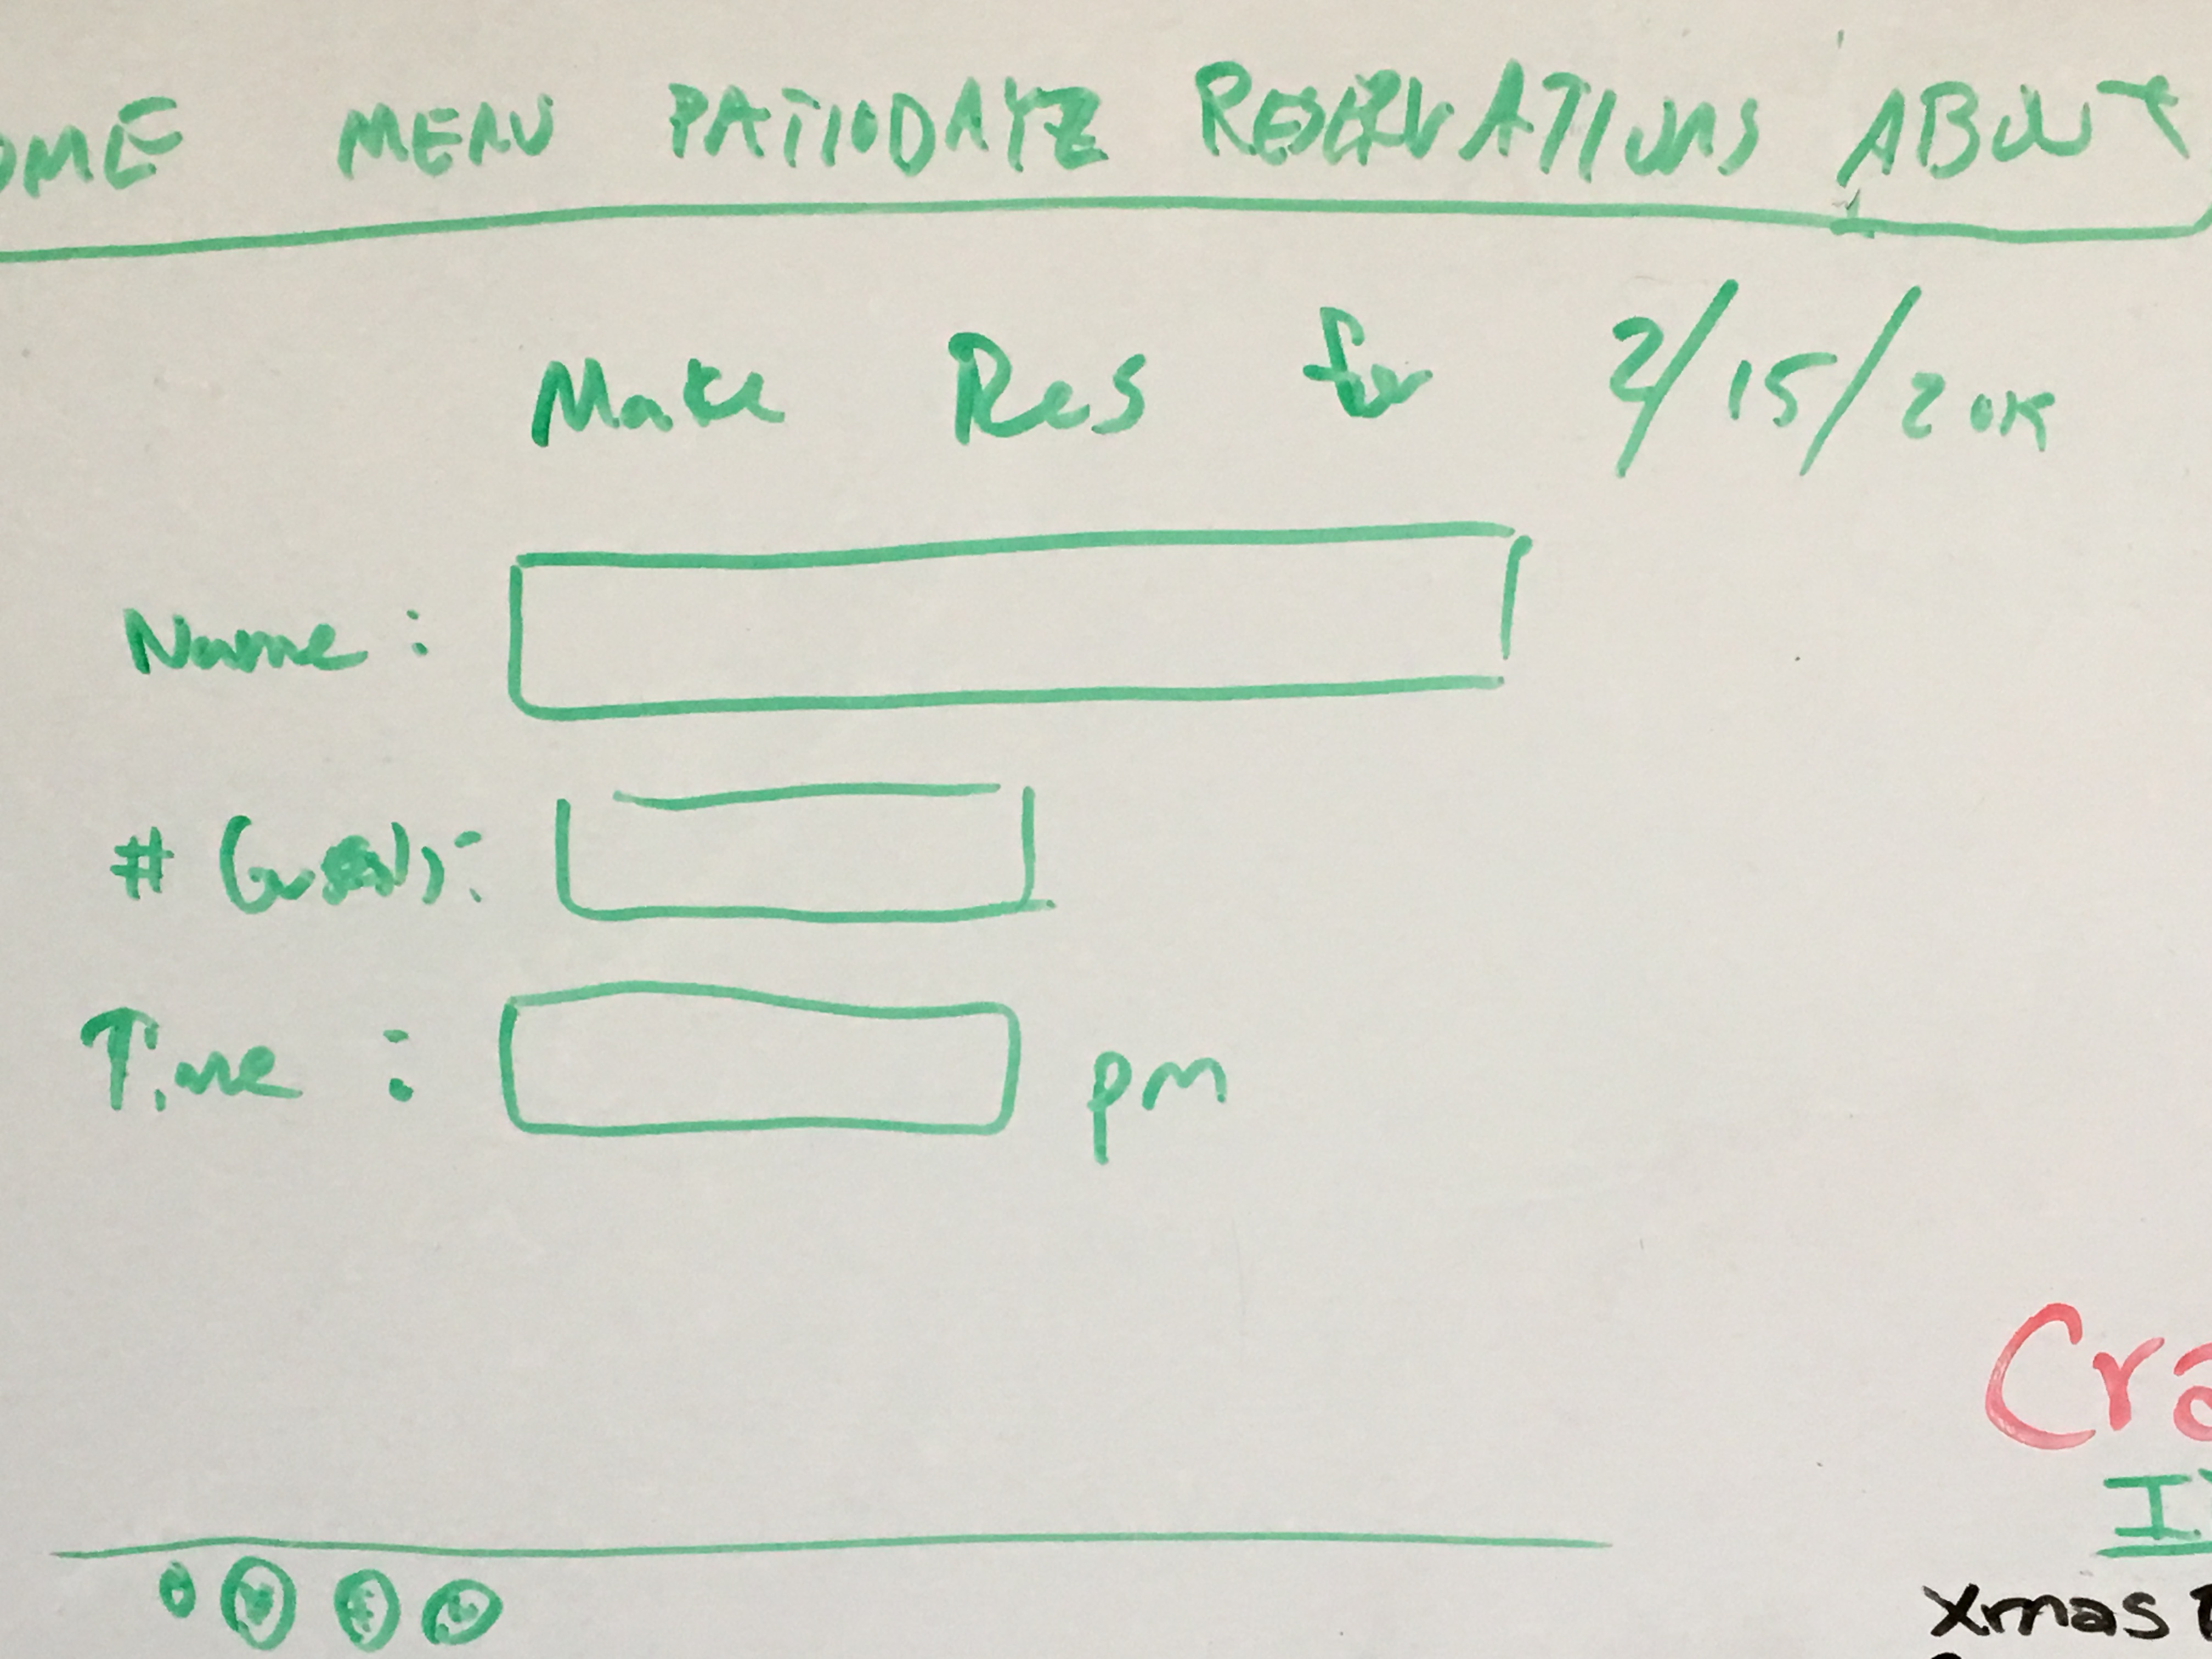 OME MENU PATIODAYZ RESERVATIONS ABOUT
Make Res for 2/15/20
Name :
# Guests:
Time : pm
Cra
Xmas